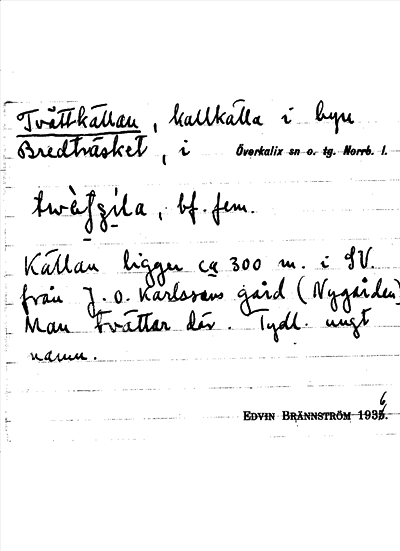 Tvättkällan, kallkälla i byn
Bredträsket, i Överkalix sn o. tg. Norrb. l.
bf. fem.
Källan ligger ca 300 m. i SV.
från J. O. Karlssons gård (Nygården)
Man tvättar där. Tydl. ungt
namn.
EDVIN BRÄNNSTRÖM 1936.